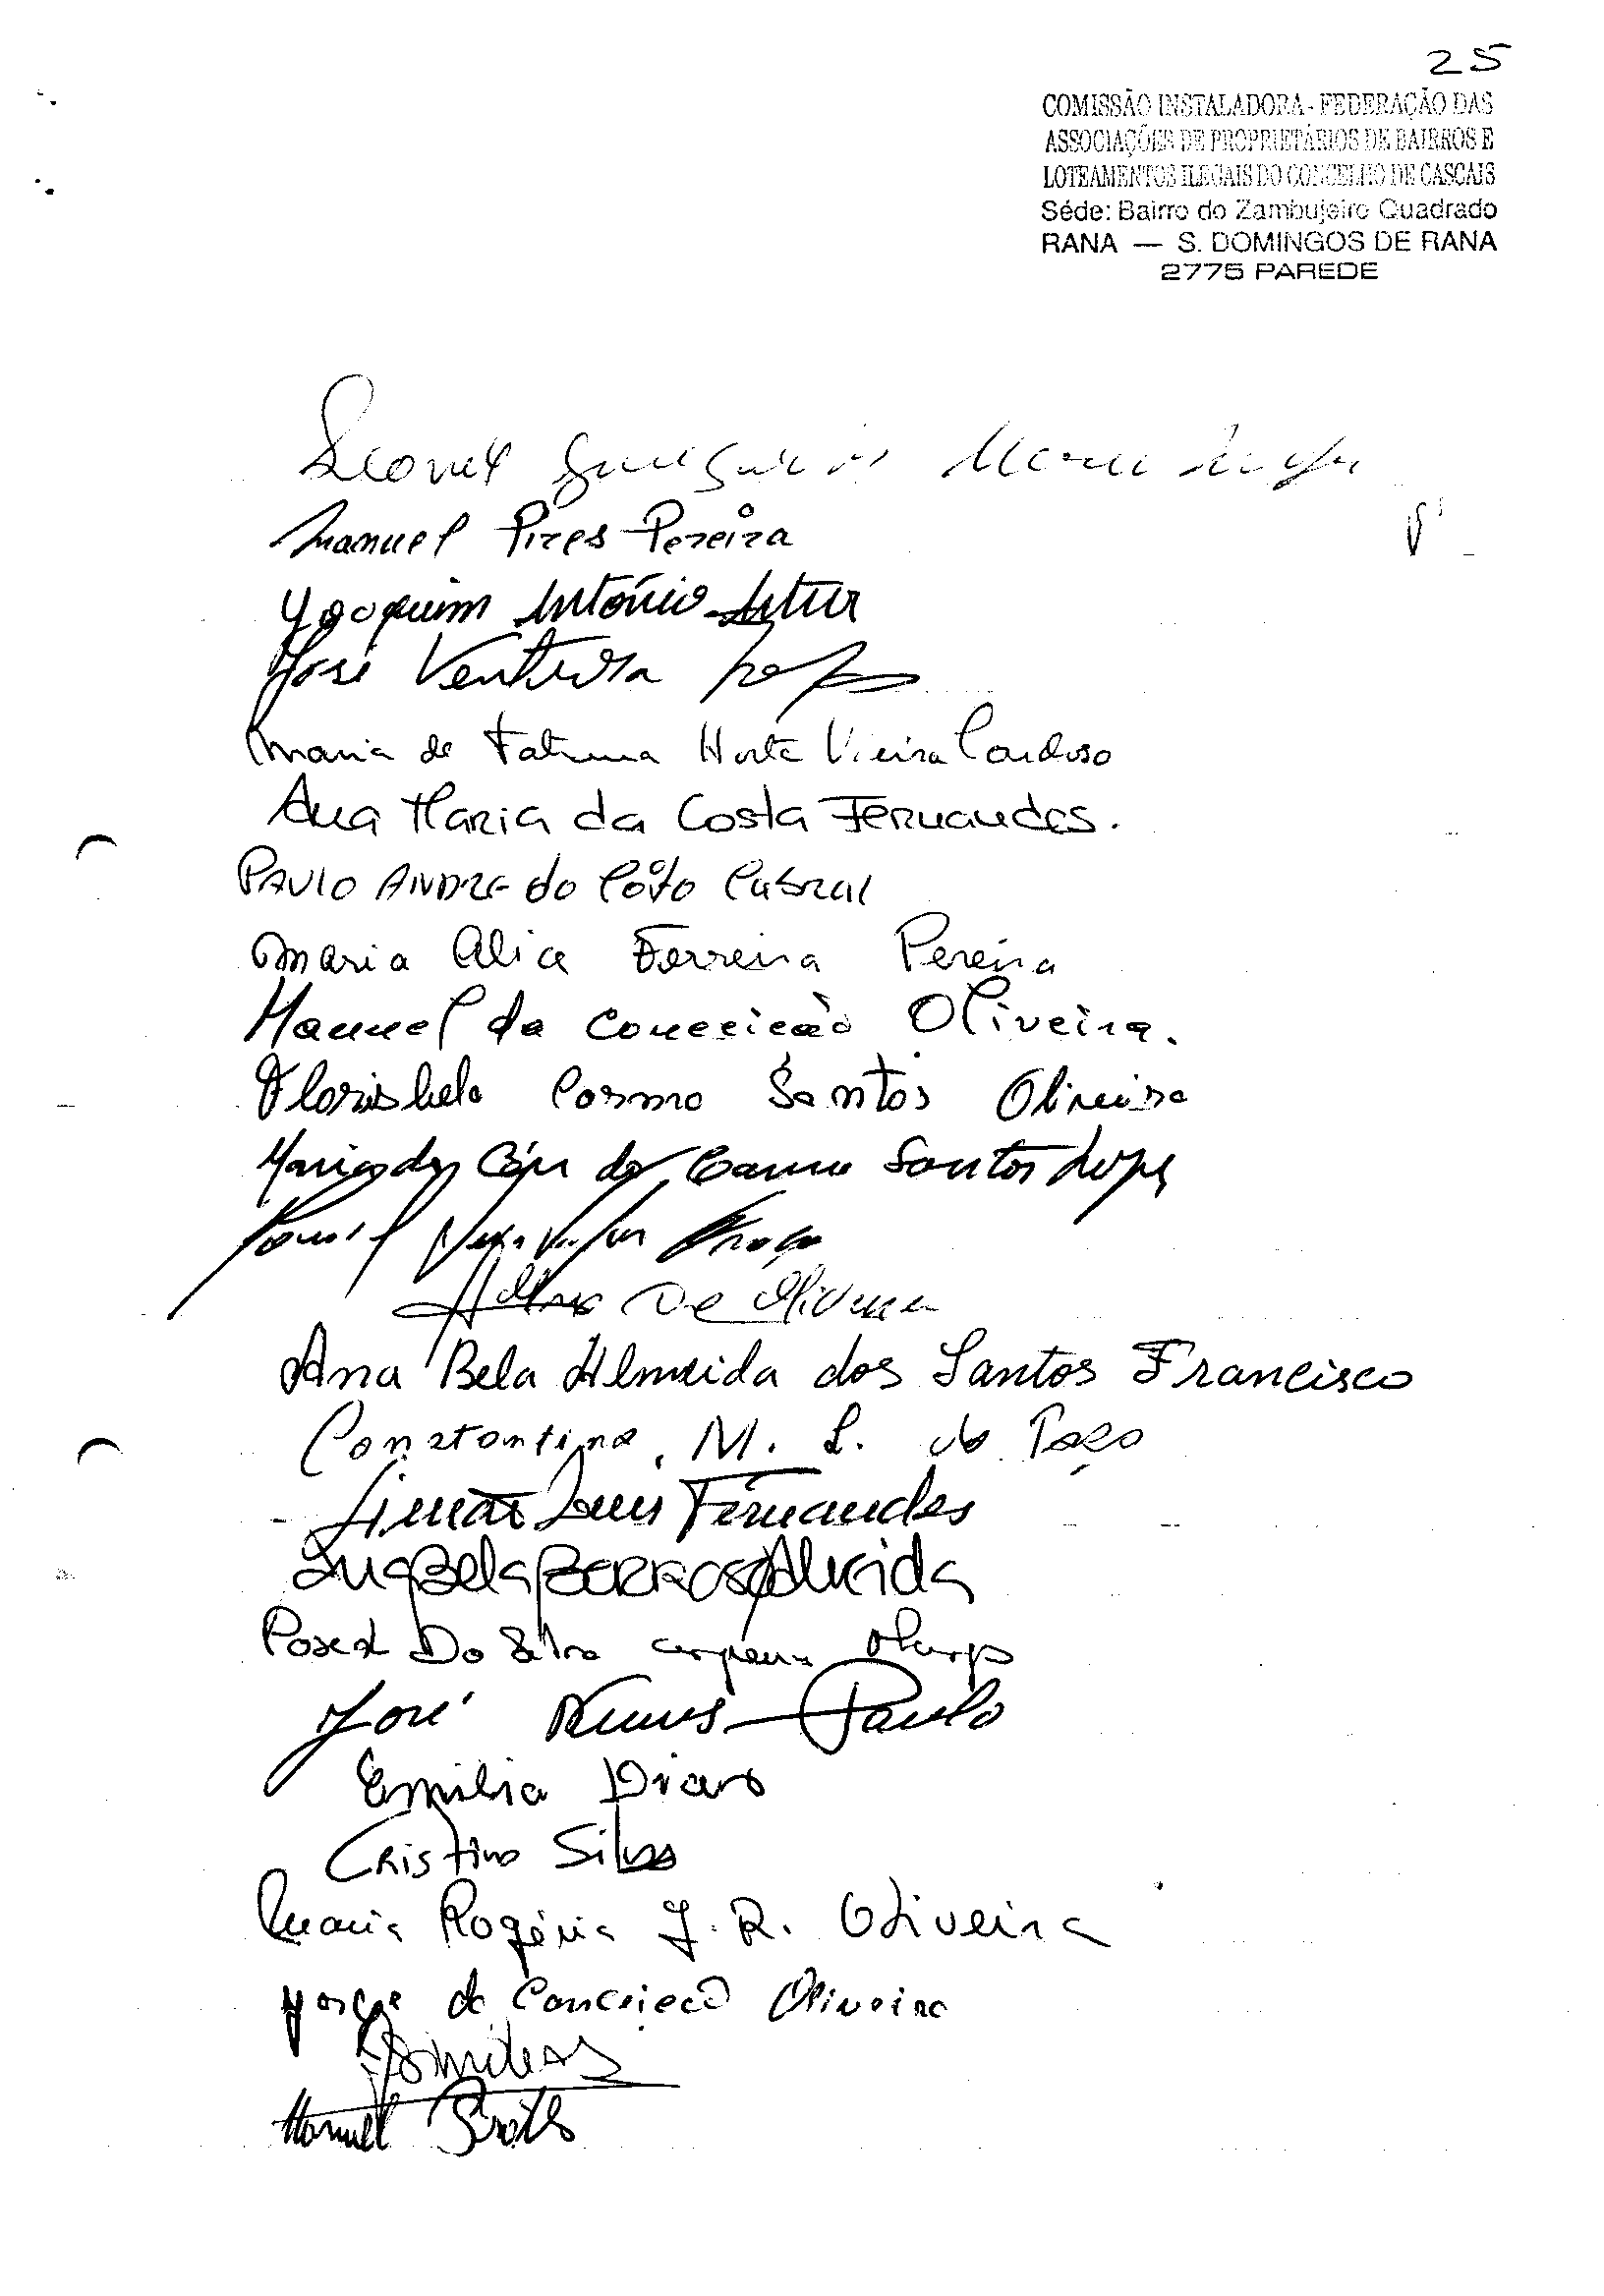 25
COMISSÃO INSTALADORA - FEDERAÇÃO DAS
ASSOCIAÇÕES DE PROPRIETÁRIOS DE BAIRROS E
LOTEAMENTOS ILEGAIS DO CONCELHO DE CASCAIS
Séde: Bairro do Zambujeiro Quadrado
RANA — S. DOMINGOS DE RANA
2775 PAREDE
Leonel
Manuel Pires Pereira
Joaquim António Artur
José Ventura
Maria de Fatima Horta Vieira Cardoso
Ana Maria da Costa Fernandes.
PAULO ANDRE do Côto Cabral
Maria Alice Ferreira Pereira
Manuel da Conceicão Oliveira.
Florisbela Cosmo Santos Oliveira
Maria do Carmo Santos Lopes
de Oliveira
Ana Bela Almeida dos Santos Francisco
Constantino M. L. do Paço
Luis Fernandes
Barros Almeida
Da Silva
José Nunes Paulo
Emilia
Cristina Silva
Maria Rogéria J. R. Oliveira
Jorge da Conceicão Oliveira
Manuel